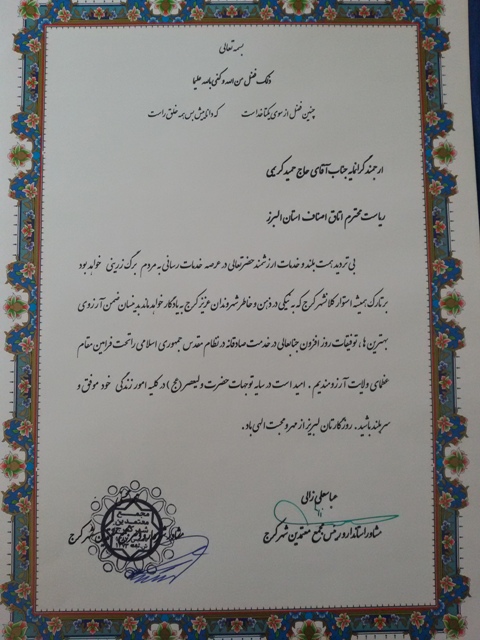 بسمه تعالی
ذلک فضل من الله و کفی بالله علیما
چنین فضل از سوی یکتا خداست که دانایش بس به خلق راست
ارجمند گرانمایه جناب آقای حاج حمید کریمی
ریاست محترم اتاق اصناف استان البرز
بی تردید همت بلند و خدمات ارزشمند حضرتعالی در عرصه خدمات رسانی به مردم برگ زرینی خواهد بود
بر تارک همیشه استوار کلانشهر کرج که به نیکی در ذهن و خاطر شهروندان عزیز کرج به یادگار خواهد ماند بدینسان ضمن آرزوی
بهترین ها، توفیقات روز افزون جنابعالی در خدمت صادقانه در نظام مقدس جمهوری اسلامی را تحت فرامین مقام
عظمای ولایت آرزومندیم . امید است در سایه توجهات حضرت ولیعصر (عج) در کلیه امور زندگی خود موفق و
سربلند باشید . روزگارتان لبریز از مهر و محبت الهی باد.
عباسعلی زالی
مشاور استاندار و رئیس مجمع معتمدین شهر کرج
مجمع
معتمدین
شهر کرج
شهر کرج